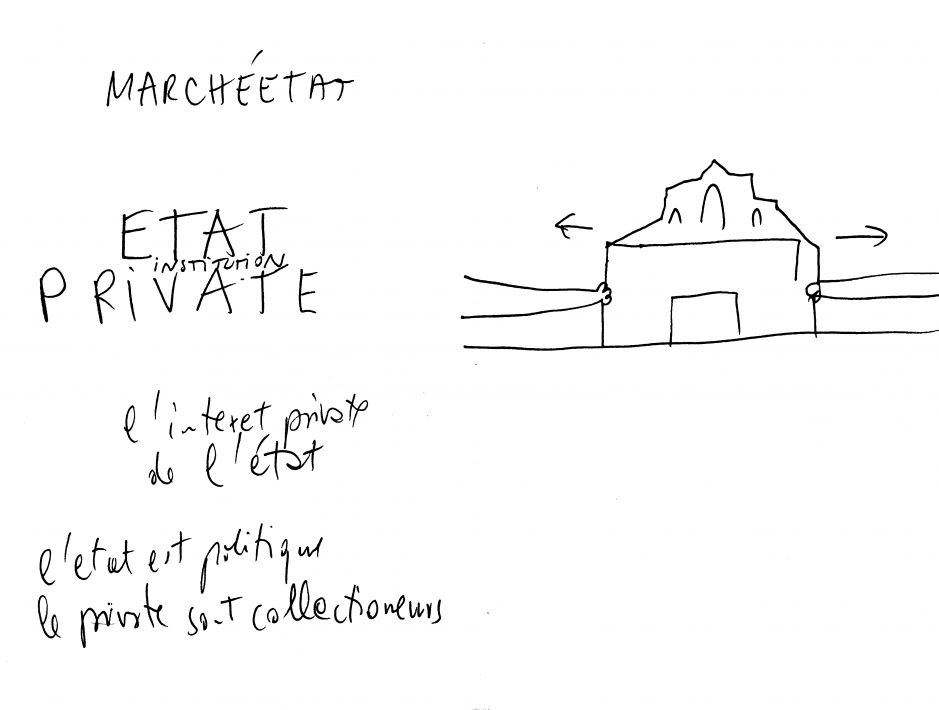 MARCHÉÉTAT
ETAT
INSTITUTION
PRIVATE
l'interet private
de l'état
l'etat est politique
le private sont collectioneurs